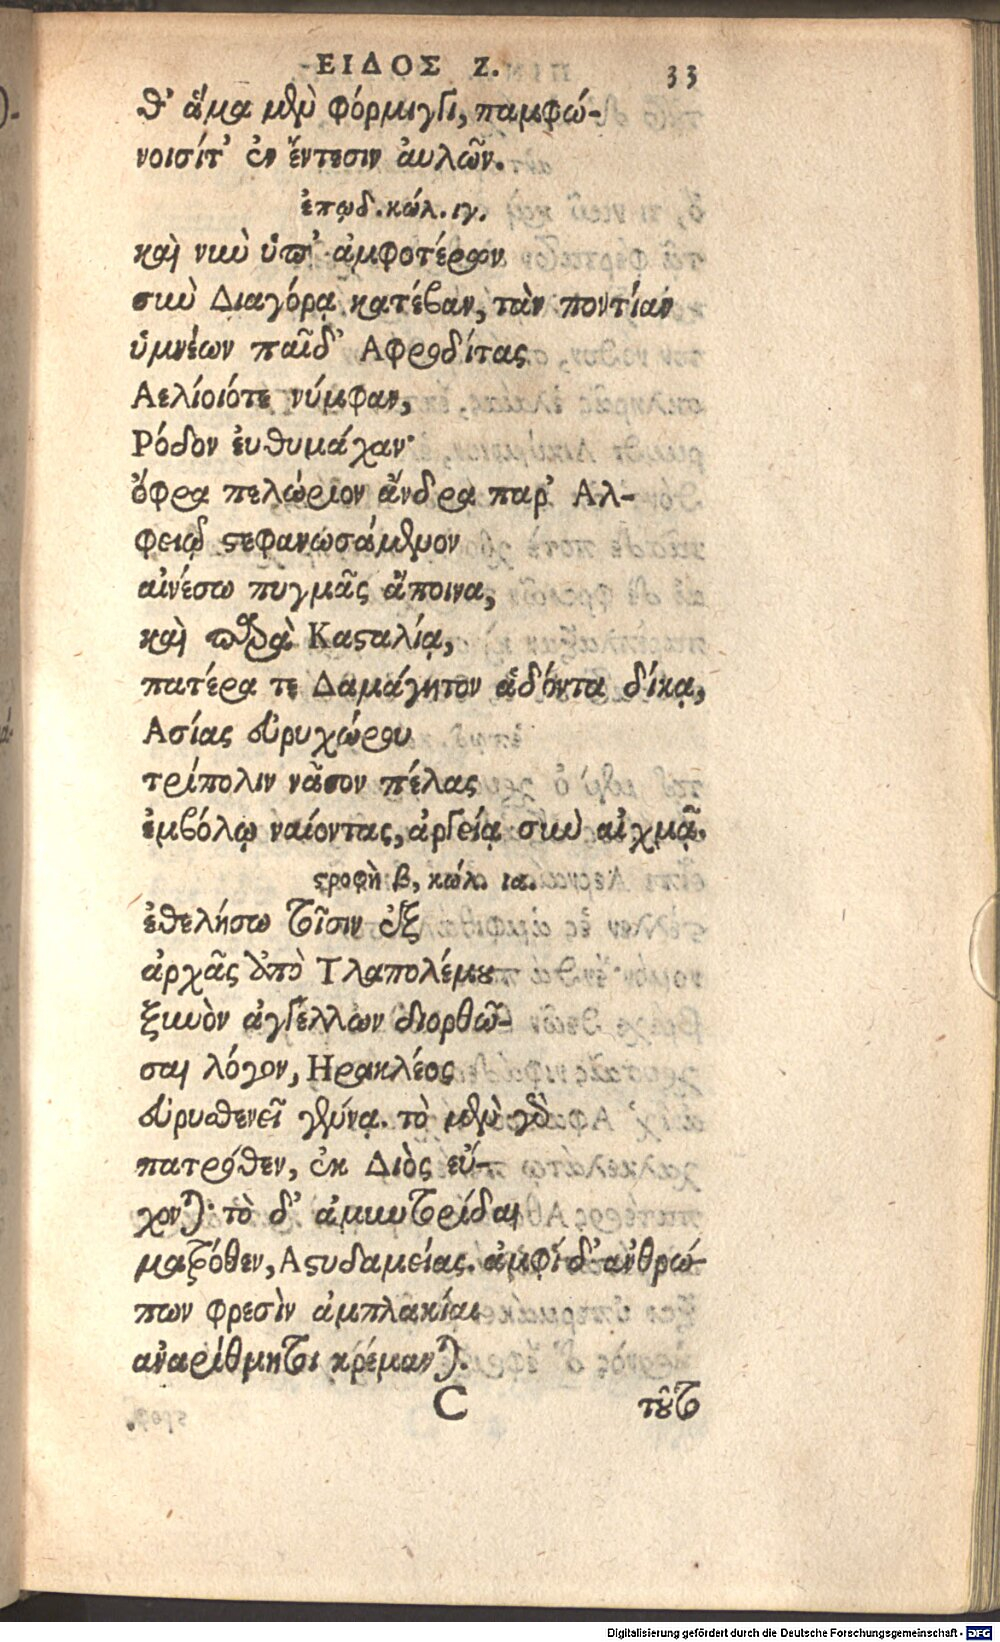 ΕΙΔΟΣ Ζ. 33
θ' ἅμα μὲν φόρμιγγι, παμφώ-
νοισίτ' ἐν ἔντεσιν ἀυλῶν.
ἐπῳδ. κώλ. ιγ.
καὶ νιιῦ ὑπ' ἀμφοτέρων
σιιὺ Διαγόρᾳ κατέβαν, τὰν ποντίαν
ὑμνέων παῖδ' Αφροδίτας
Αελίοιότε νύμφαν,
Ρόδον ἐυθυμάχαν·
ὄφρα πελώριον ἄνδρα παρ' Αλ-
φειῷ στεφανωσάμενον
αἰνέσω πυγμᾶς ἄποινα,
καὶ παρὰ Κασταλίᾳ,
πατέρα τε Δαμάγητον ἁδόντα δίκᾳ,
Ασίας εὐρυχώρου
τρίπολιν νᾶσον πέλας
ἐμβόλῳ ναίοντας, ἀργείᾳ σὺν αἰχμᾷ.
στροφὴ β, κώλ. ια.
ἐθελήσω τοῖσιν ἐξ
ἀρχᾶς ἀπὸ Τλαπολέμου
ξυνὸν ἀγγέλλων διορθῶ-
σαι λόγον, Ηρακλέος
εὐρυσθενεῖ γέννᾳ. τὸ μὲν γὰρ
πατρόθεν, ἐκ Διὸς εὔ-
χονται· τὸ δ' ἀμυντορίδαι
ματρόθεν, Αστυδαμείας. ἀμφὶ δ' ἀνθρώ-
πων φρεσὶν ἀμπλακίαι
ἀναρίθμητοι κρέμανται.
C τοῦτο